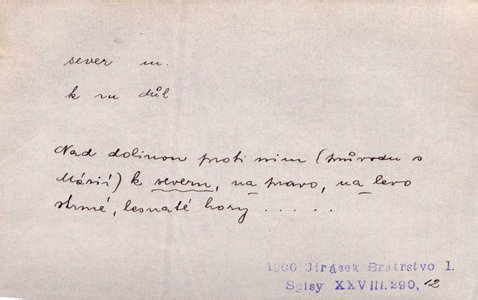 sever m.
k nu důl
Nad dolinou proti nim (průvodu s
Márií) k severu, na pravo, na levo
strmé, lesnaté hory . . . . .
1900 Jirásek Bratrstvo 1.
Spisy XXVIII.290, 12